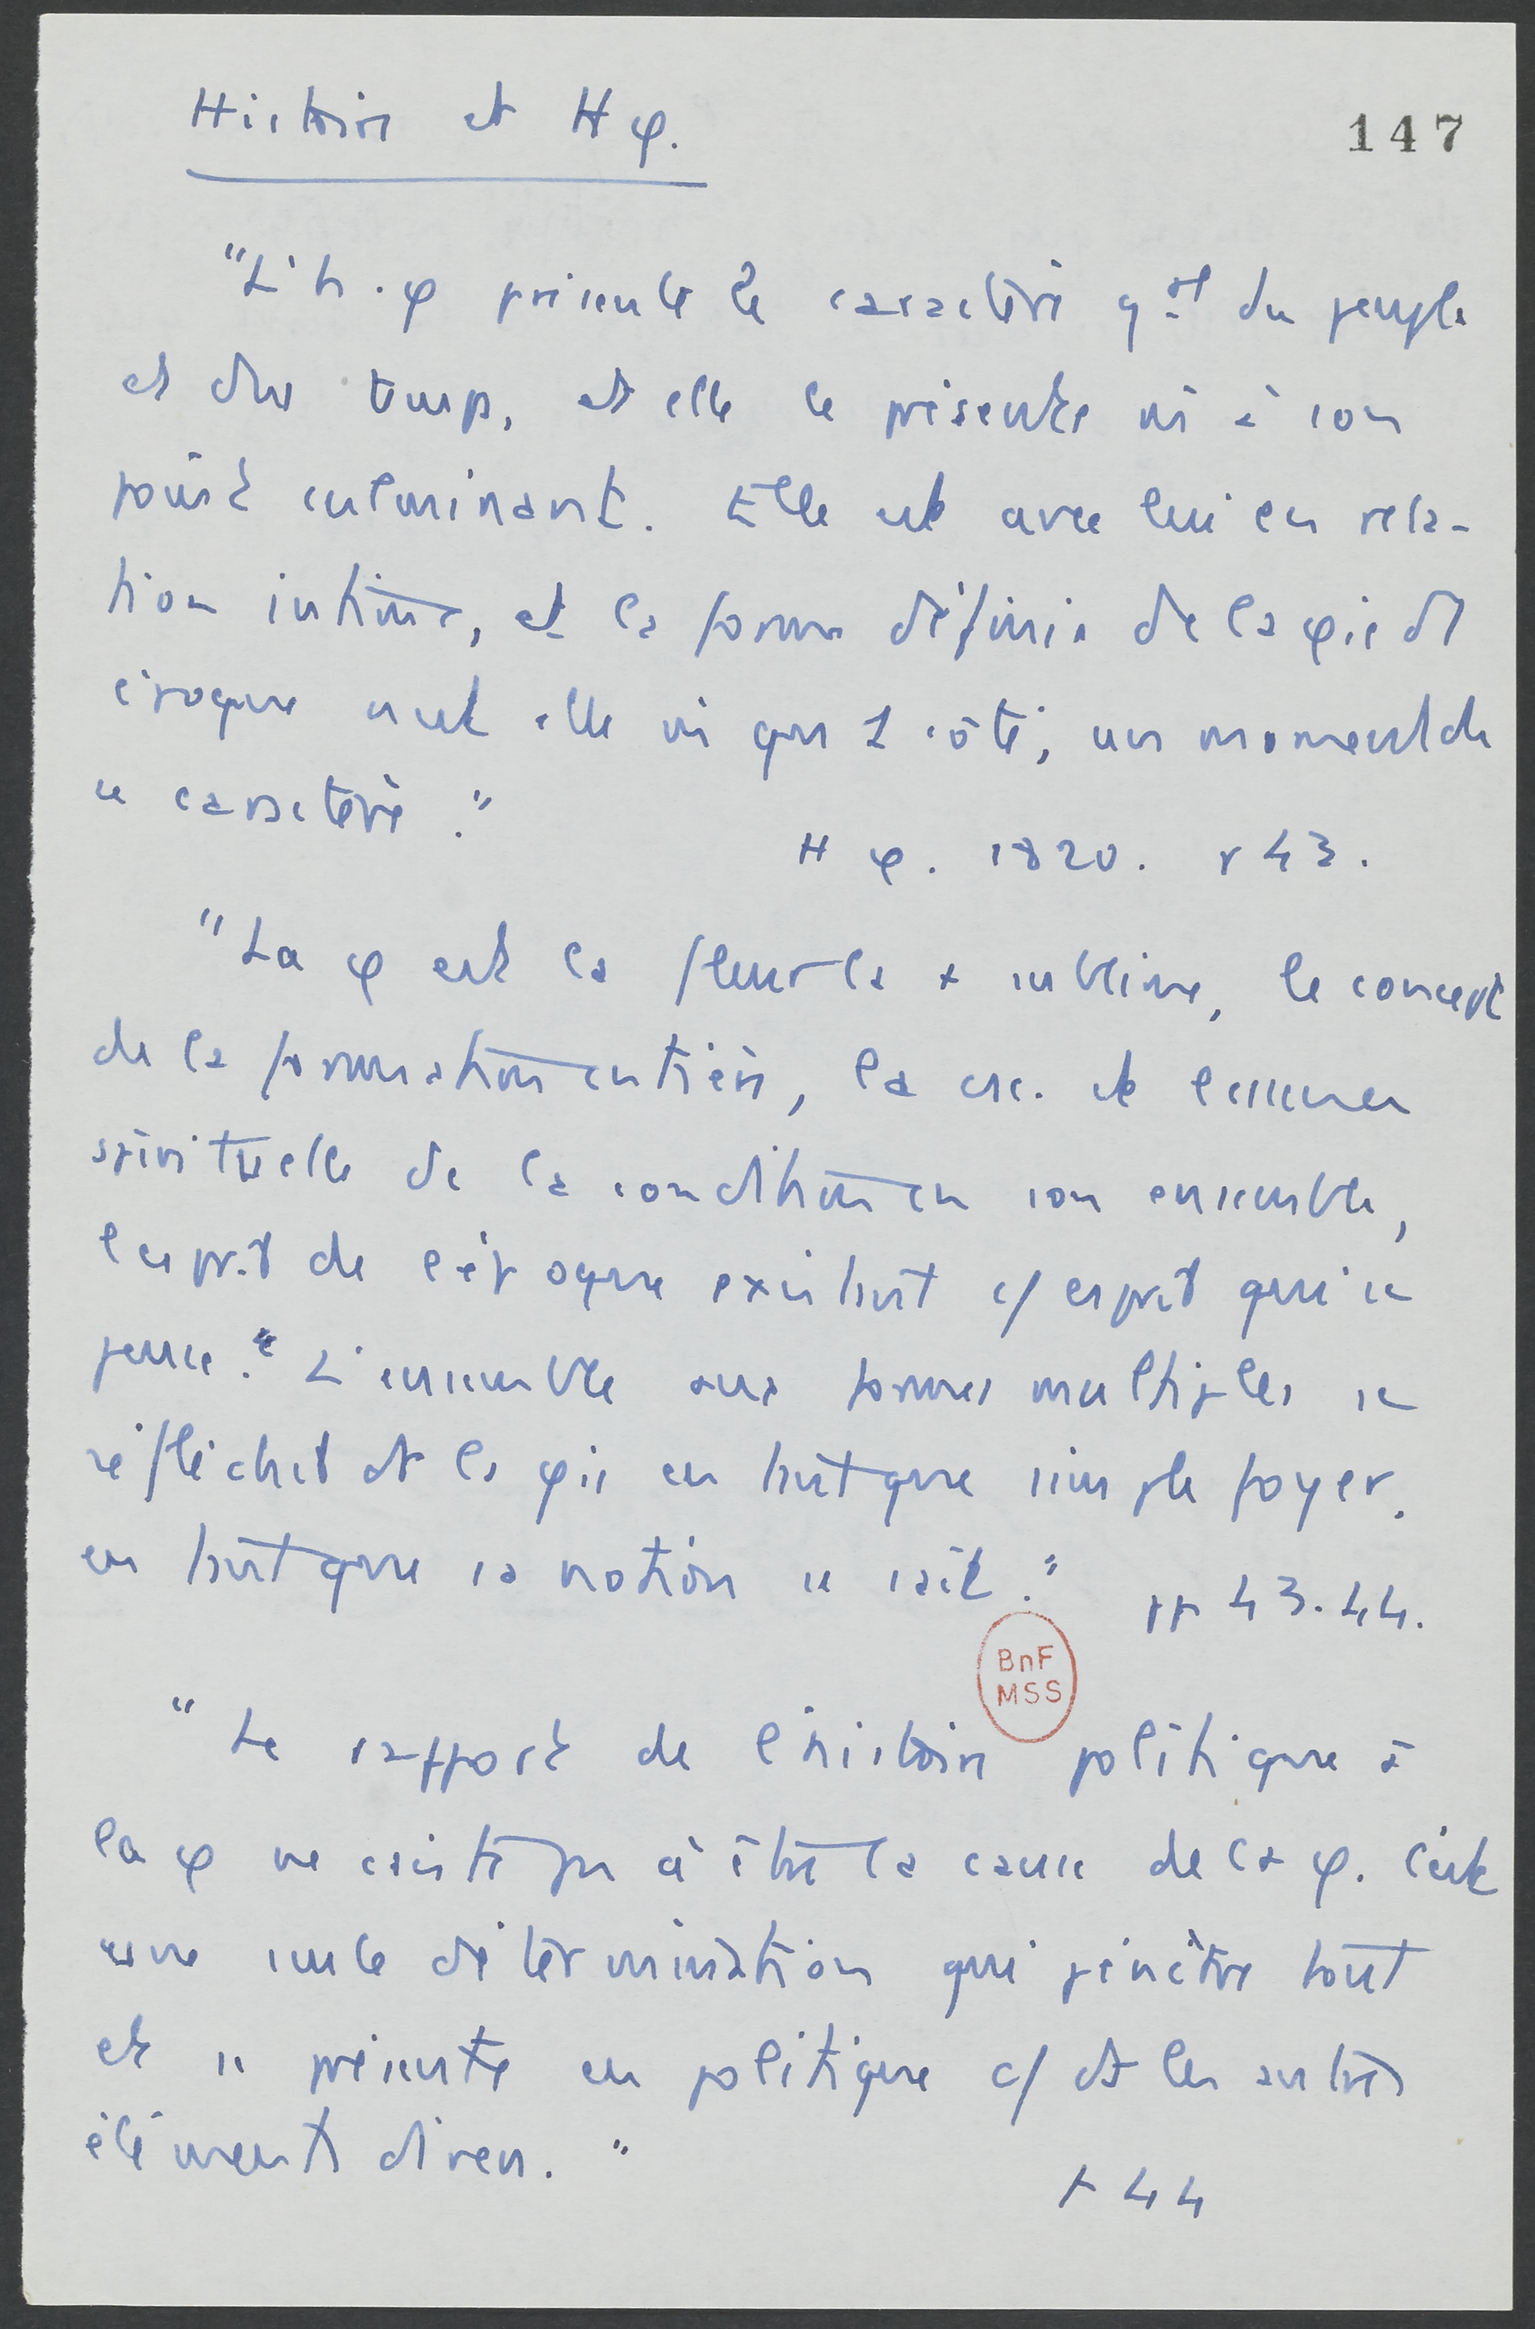 Histoire et H φ.
147
"L'h. φ présente le caractère gal du peuple
et du temps, et elle le présente ici à son
point culminant. Elle est avec lui en rela-
tion intime, et la forme définie de la φie d'1
époque n'est elle ici que 1 côté, un moment de
ce caractère."
H φ. 1820. p 43.
"La φ est la fleur la + sublime, le concept
de la formation entière, la csc. et l'essence
spirituelle de la condition en son ensemble,
l'esprit de l'époque existant c/ esprit qui se
pense." L'ensemble aux formes multiples se
réfléchit ds la φie en tant que simple foyer,
en tant que sa notion se sait."
pp 43.44.
BnF
MSS
"Le rapport de l'histoire politique à
la φ ne csiste pas à être la cause de la φ. C'est
une seule détermination qui pénètre tout
et se présente en politique c/ ds les autres
éléments divers."
p 44